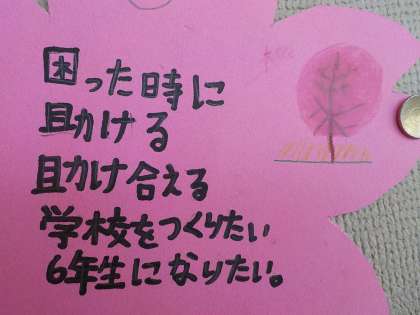 困った時に
助ける
助け合える
学校をつくりたい
6年生になりたい。